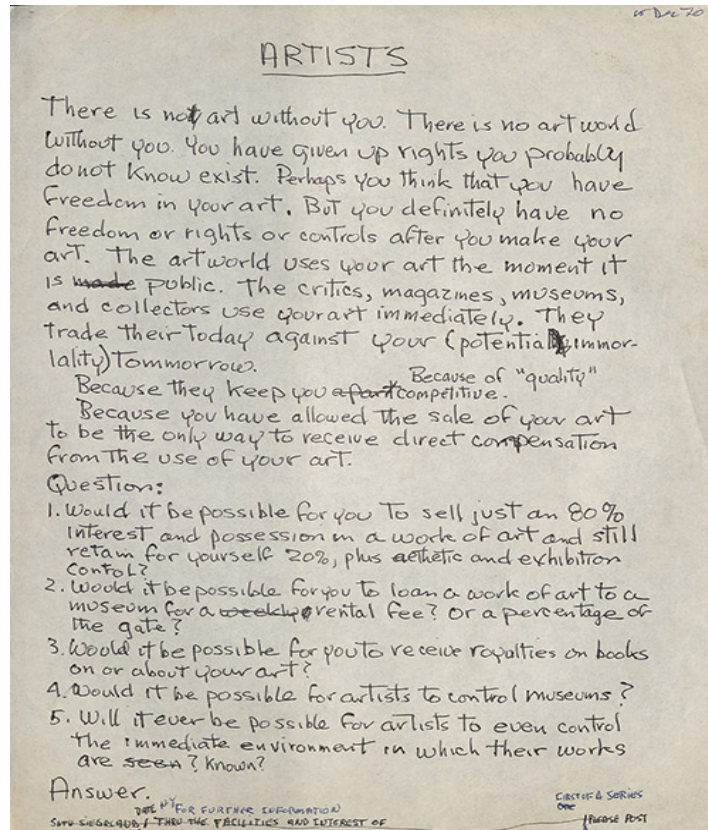 15 Dec 70
ARTISTS
There is not art without you. There is no art world
without you. You have given up rights you probably
do not know exist. Perhaps you think that you have
freedom in your art. But you definitely have no
freedom or rights or controls after you make your
art. The artworld uses your art the moment it
is made public. The critics, magazines, museums,
and collectors use your art immediately. They
trade their Today against your (potential immor-
tality) Tommorrow.
Because of "quality"
Because they keep you apart competitive.
Because you have allowed the sale of your art
to be the only way to receive direct compensation
from the use of your art.
Question:
1. Would it be possible for you to sell just an 80%
interest and possession in a work of art and still
retain for yourself 20%, plus aethetic and exhibition
control?
2. Would it be possible for you to loan a work of art to a
museum for a weekly rental fee? Or a percentage of
the gate?
3. Would it be possible for you to receive royalties on books
on or about your art?
4. Would it be possible for artists to control museums?
5. Will it ever be possible for artists to even control
the immediate environment in which their works
are seen? Known?
Answer.
DATE NY FOR FURTHER INFORMATION
FIRST OF A SERIES
SETH SIEGELAUB / THRU THE FACILITIES AND INTEREST OF
PLEASE POST